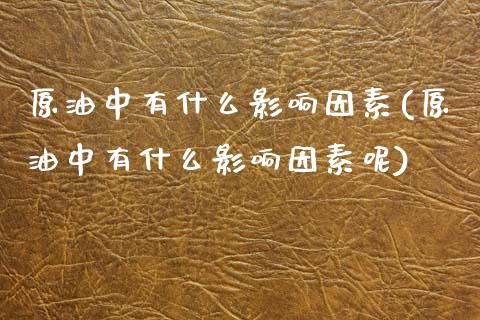 原油中有什么影响因素(原
油中有什么影响因素呢)